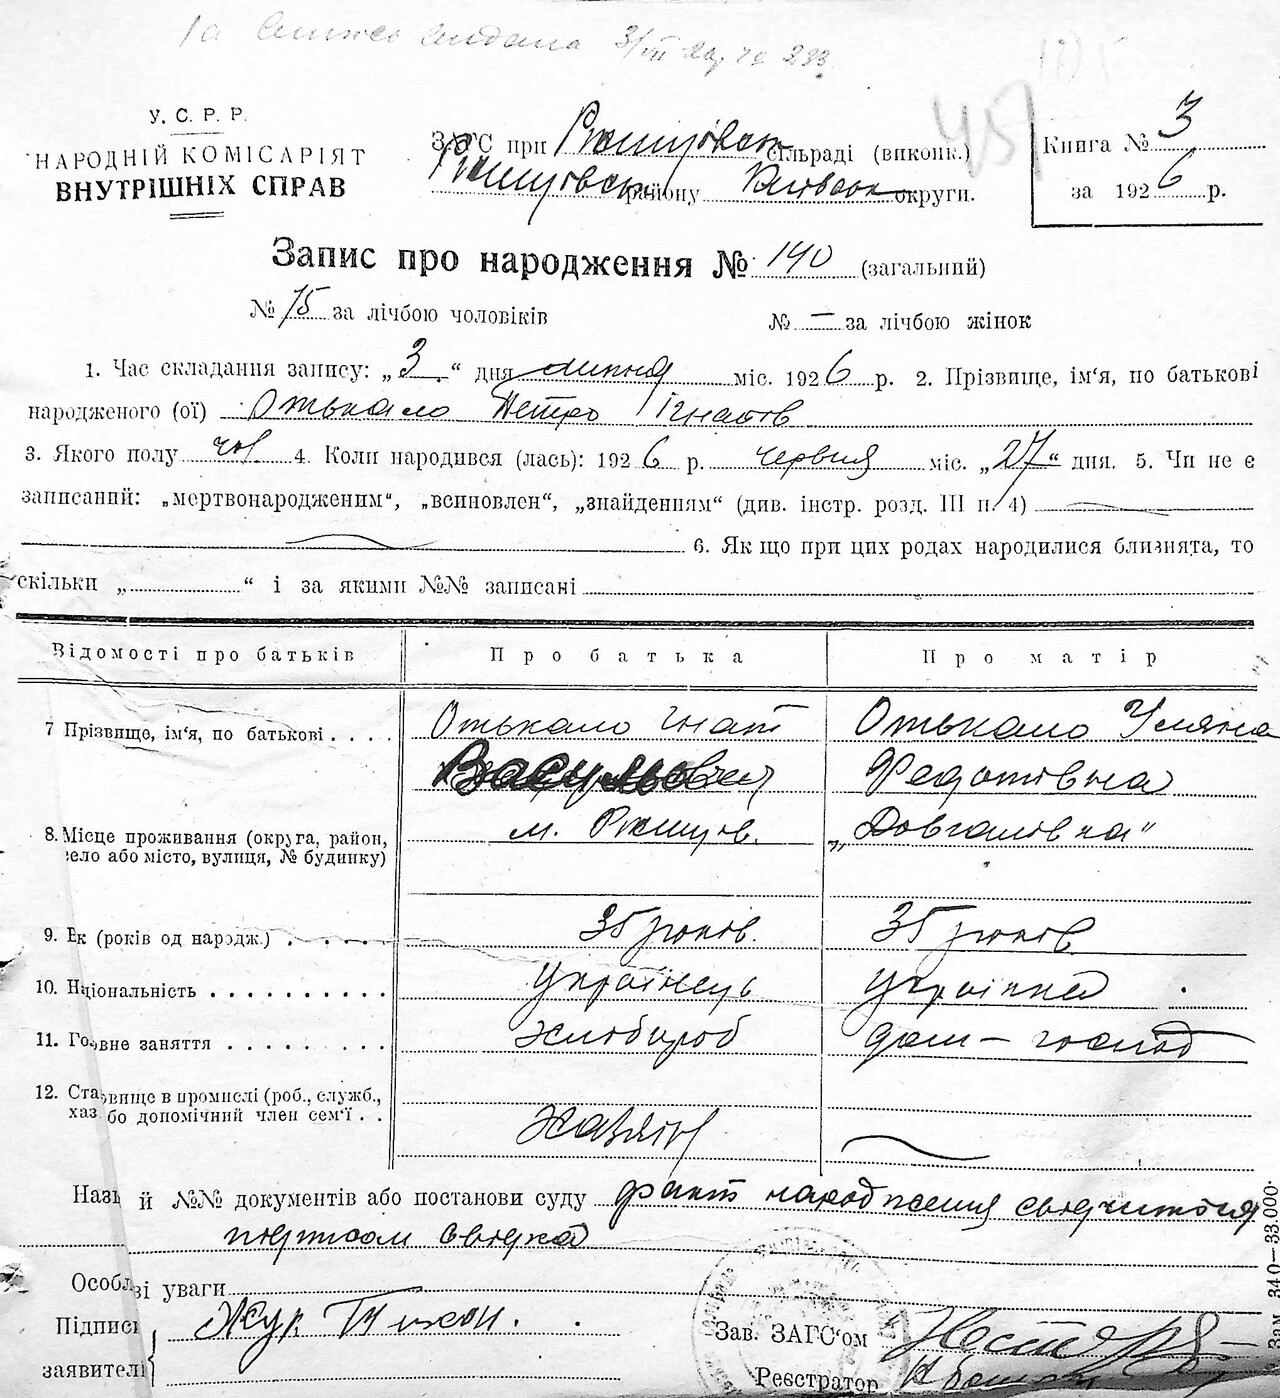 У. С. Р. Р.
НАРОДНІЙ КОМІСАРІЯТ
ВНУТРІШНІХ СПРАВ
ЗАГС при Ржищівськ сільраді (виконк.)
Ржищівськ району Київськ округи.
Книга № 3
за 1926 р.
Запис про народження № 140 (загальний)
№ 75 за лічбою чоловіків № — за лічбою жінок
1. Час складання запису: „3“ дня липня міс. 1926 р. 2. Прізвище, ім'я, по батькові
народженого (ої) Отькало Петро Ігнатів
3. Якого полу чол 4. Коли народився (лась): 1926 р. червня міс. „27“ дня. 5. Чи не є
записаний: „мертвонародженим“, „всиновлен“, „знайденням“ (див. інстр. розд. III п. 4)
6. Як що при цих родах народилися близнята, то
скільки „ “ і за якими №№ записані
Відомості про батьків Про батька Про матір
7 Прізвище, ім'я, по батькові Отькало Гнат Отькало Уляна
Васильович Федотівна
8. Місце проживання (округа, район, м. Ржищів. „Довгалівка“
село або місто, вулиця, № будинку)
9. Вік (років од народж.) 35 років. 35 років
10. Національність Українець Українка
11. Головне заняття хлібороб дом-господ
12. Становище в промислі (роб., служб.,
хаз або допомічний член сем'ї Хазяїн
Назв й №№ документів або постанови суду факт народження свідчиться
підписом свідка
Особливі уваги
Підписи Жук Тихон.
заявителі
Зав. ЗАГС'ом
Реєстратор
Зам. 340—33.000.